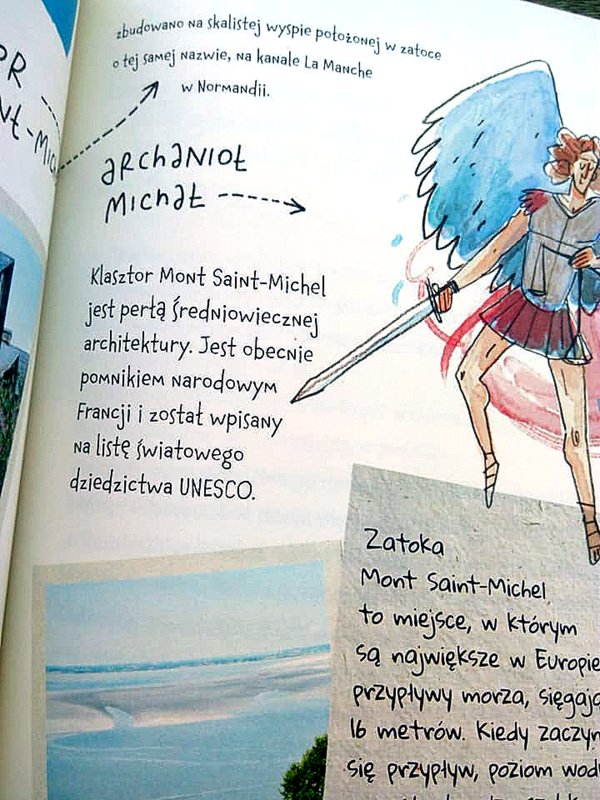 zbudowano na skalistej wyspie położonej w zatoce
o tej samej nazwie, na kanale La Manche
w Normandii.
archanioł
Michał
Klasztor Mont Saint-Michel
jest perłą średniowiecznej
architektury. Jest obecnie
pomnikiem narodowym
Francji i został wpisany
na listę światowego
dziedzictwa UNESCO.
Zatoka
Mont Saint-Michel
to miejsce, w którym
są największe w Europie
przypływy morza,
16 metrów. Kiedy
się przypływ, poziom